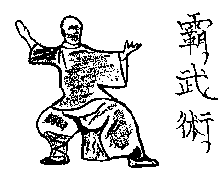 霸武術